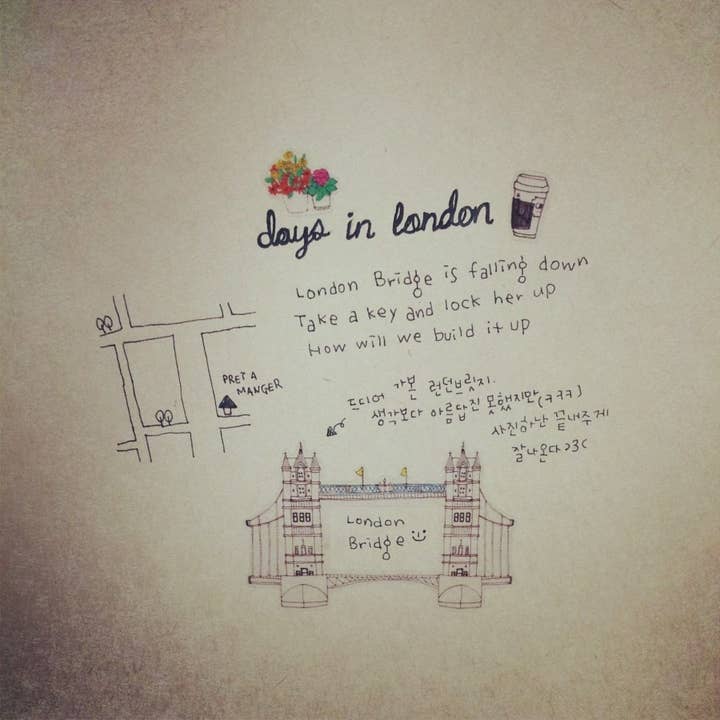 days in london
London Bridge is falling down
Take a key and lock her up
How will we build it up
PRET A
MANGER
드디어 가본 런던브릿지.
생각보다 아름답진 못했지만(ㅋㅋㅋ)
사진하난 끝내주게
잘나온다
London
Bridge